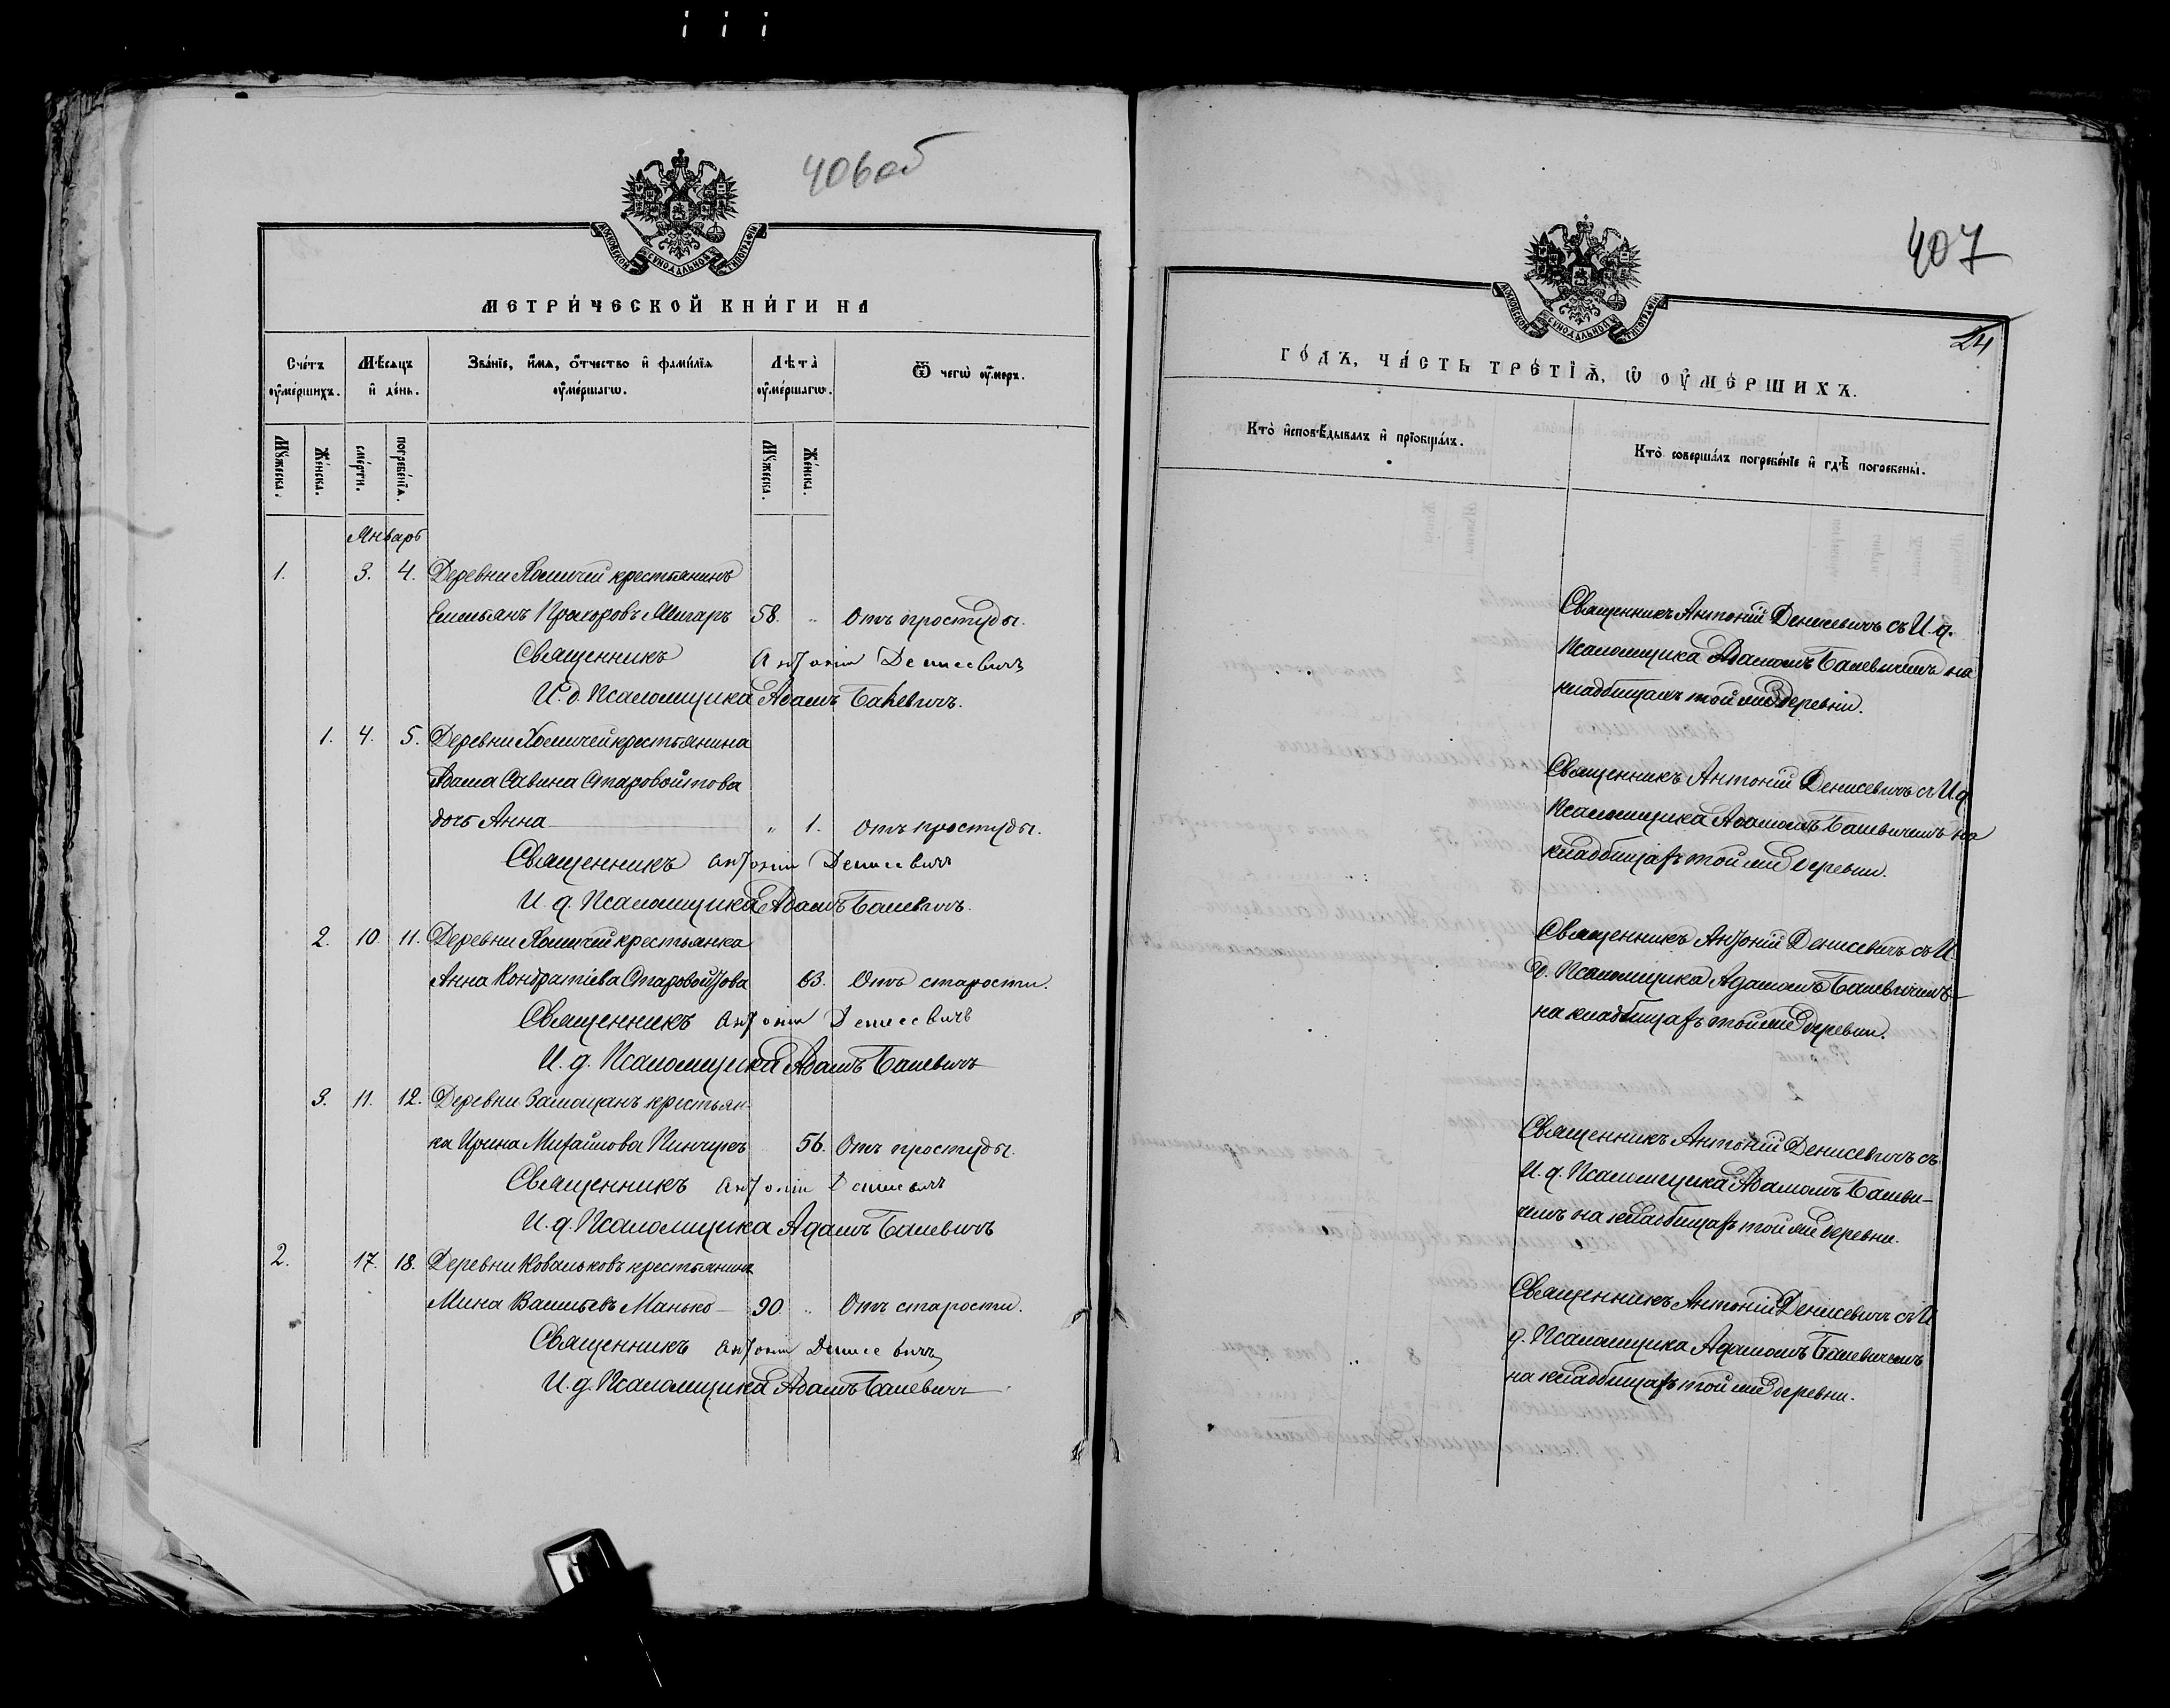 406 об
МОСКОВСКОЙ СѴНОДАЛЬНОЙ ТИПОГРАФІИ
МЕТРИ́ЧЕСКОЙ КНИ́ГИ НА
Сче́тъ ᲂу҆ме́ршихъ.
Мѣ́сяцъ и҆ де́нь.
Зва́нїе, и҆́мѧ, ѻ҆́тчество и҆ фамі́лїѧ ᲂу҆ме́ршагѡ.
Лѣта̀ ᲂу҆ме́ршагѡ.
Ѿ чегѡ̀ ᲂу҆́меръ.
Мꙋ́жеска.
Же́нска.
сме́рти.
погребе́нїѧ.
Мꙋ́жеска.
Же́нска.
Январь
1. 3. 4. Деревни Хомичей крестьянинъ
Емельянъ Прохоровъ Мигаръ 58. „ Отъ простуды.
Священникъ Антоній Денисевичъ
И. д. Псаломщика Адамъ Балевичъ.
1. 4. 5. Деревни Хомичей крестьянина
Адама Савина Старовойтова
дочь Анна „ 1. Отъ простуды.
Священникъ Антоній Денисевичъ
И. д. Псаломщика Адамъ Балевичъ.
2. 10. 11. Деревни Хомичей крестьянка
Анна Кондратіева Старовойтова 63. Отъ старости.
Священникъ Антоній Денисевичъ
И. д. Псаломщика Адамъ Балевичъ
3. 11. 12. Деревни Замощанъ крестьян-
ка Ирина Михайлова Пинчукъ 56. Отъ простуды.
Священникъ Антоній Денисевичъ
И. д. Псаломщика Адамъ Балевичъ
2. 17. 18. Деревни Ковальковъ крестьянинъ
Мина Васильевъ Манько 90. „ Отъ старости.
Священникъ Антоній Денисевичъ
И. д. Псаломщика Адамъ Балевичъ
407
24
МОСКОВСКОЙ СѴНОДАЛЬНОЙ ТИПОГРАФІИ
ГО́ДЪ, ЧА́СТЬ ТРЕ́ТЇѦ, Ѡ҆ ОУ҆МЕ́РШИХЪ.
Кто̀ и҆сповѣ́дывалъ и҆ прїобща́лъ.
Кто̀ соверша́лъ погребе́нїе и҆ гдѣ̀ погребены̀.
Священникъ Антоній Денисевичъ съ И. д.
Псаломщика Адамомъ Балевичемъ на
кладбищахъ той же деревни.
Священникъ Антоній Денисевичъ съ И д
Псаломщика Адамомъ Балевичемъ на
кладбищахъ той же деревни.
Священникъ Антоній Денисевичъ съ И.
д. Псаломщика Адамомъ Балевичемъ
на кладбищахъ той же деревни.
Священникъ Антоній Денисевичъ съ
И. д. Псаломщика Адамомъ Балеви-
чемъ на кладбищахъ той же деревни.
Священникъ Антоній Денисевичъ съ И
д. Псаломщика Адамомъ Балевичемъ
на кладбищахъ той же деревни.